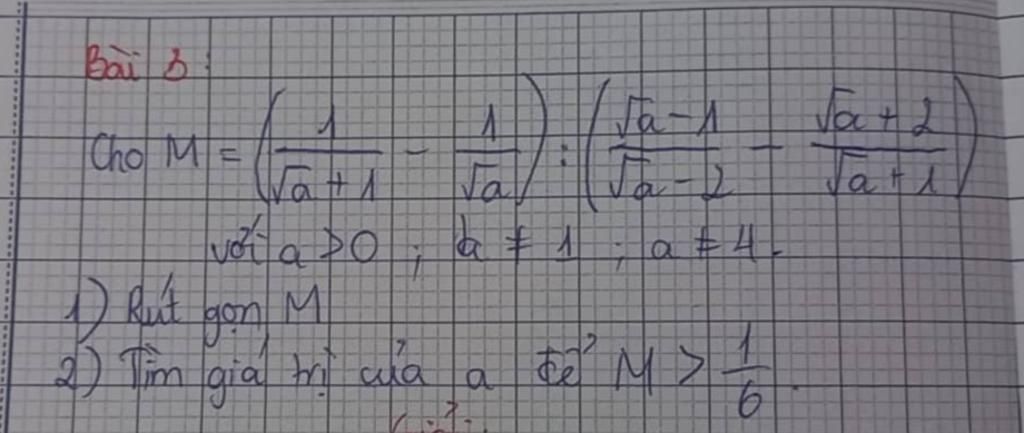 Bài 3:
Cho M = (1/(√a + 1) - 1/√a) : ((√a - 1)/(√a - 2) - (√a + 2)/(√a + 1))
với a > 0 ; a ≠ 1 ; a ≠ 4.
1) Rút gọn M
2) Tìm giá trị của a để M > 1/6.